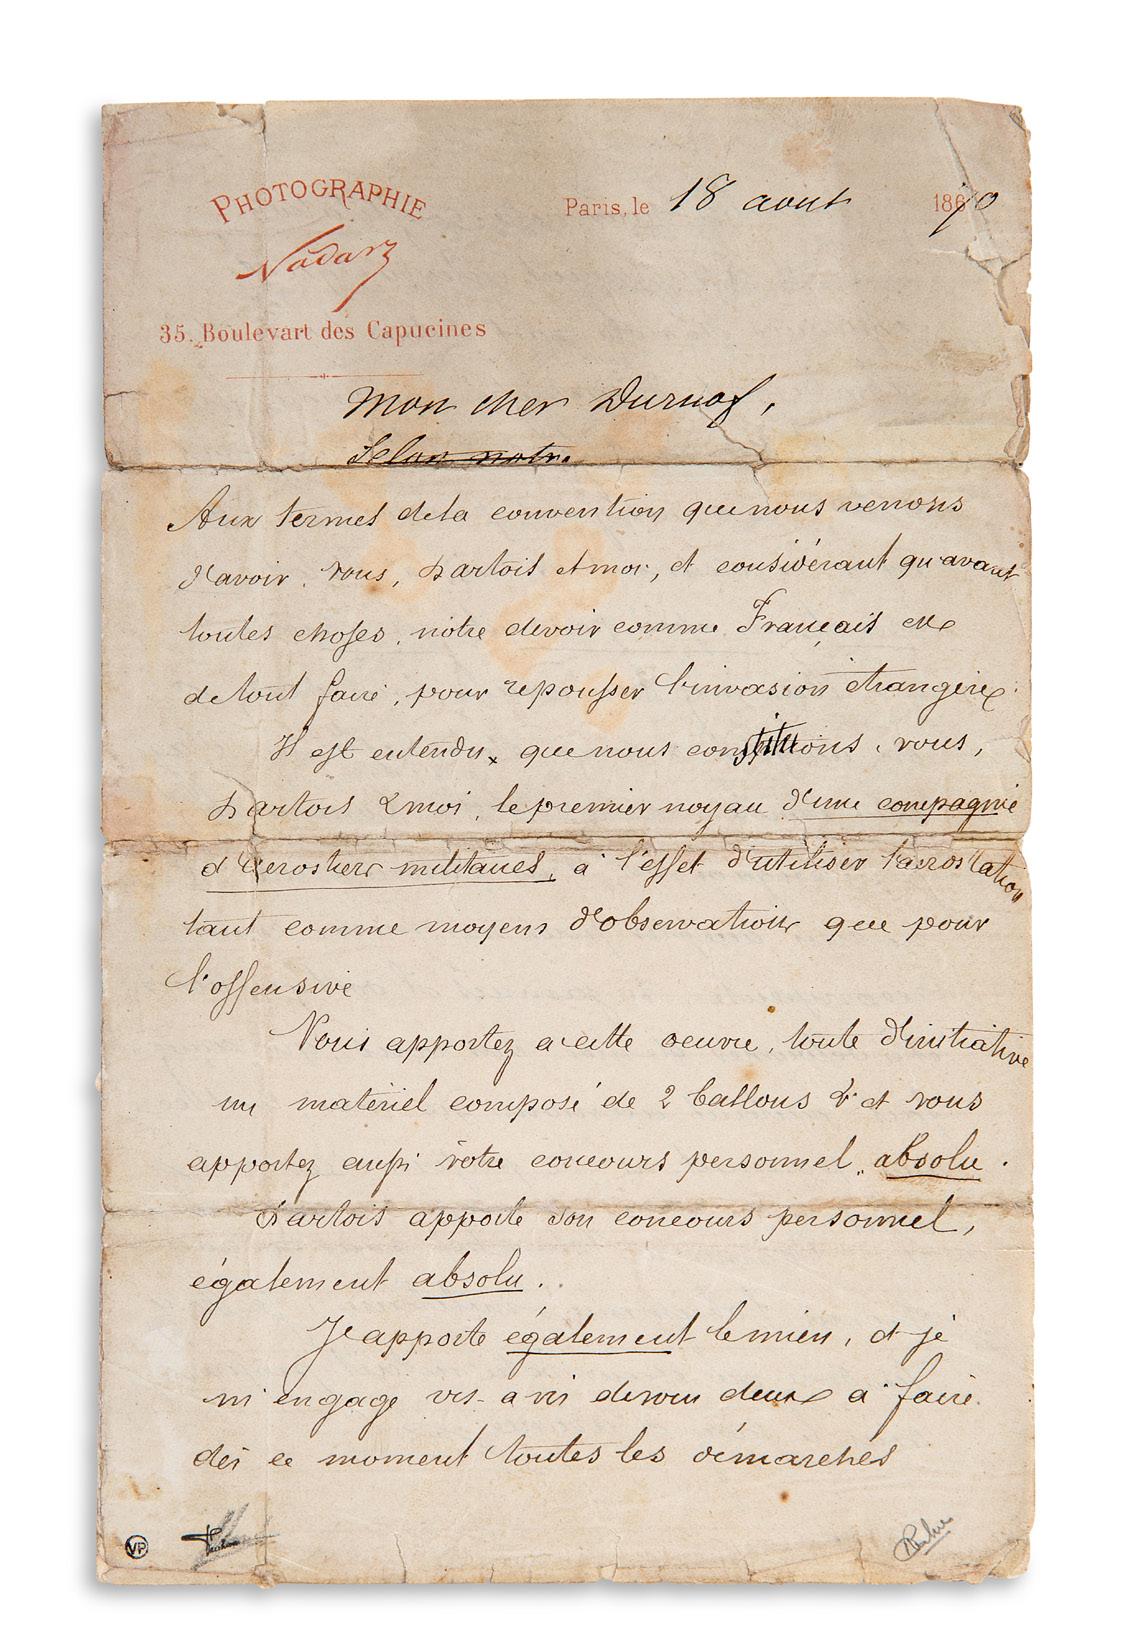 PHOTOGRAPHIE
Nadar
35. Boulevart des Capucines
Paris, le 18 aout 1870
Mon cher Duruof,
Selon notre
Aux termes de la convention que nous venons
d'avoir, vous, Dartois et moi, et considérant qu'avant
toutes choses, notre devoir comme Français est
de tout faire, pour repousser l'invasion étrangère
Il est entendu, que nous constituons, vous,
Dartois & moi, le premier noyau d'une compagnie
d'aerostiers militaires, à l'effet d'utiliser l'aerostation
tant comme moyens d'observation que pour
l'offensive
Vous apportez a cette oeuvre, toute d'initiative
un matériel composé de 2 ballons & vous
apportez aussi votre concours personnel, absolu.
Dartois apporte son concours personnel,
également absolu.
J'apporte également le mien, et je
m'engage vis-a vis de vous deux à faire
dès ce moment toutes les démarches
VP